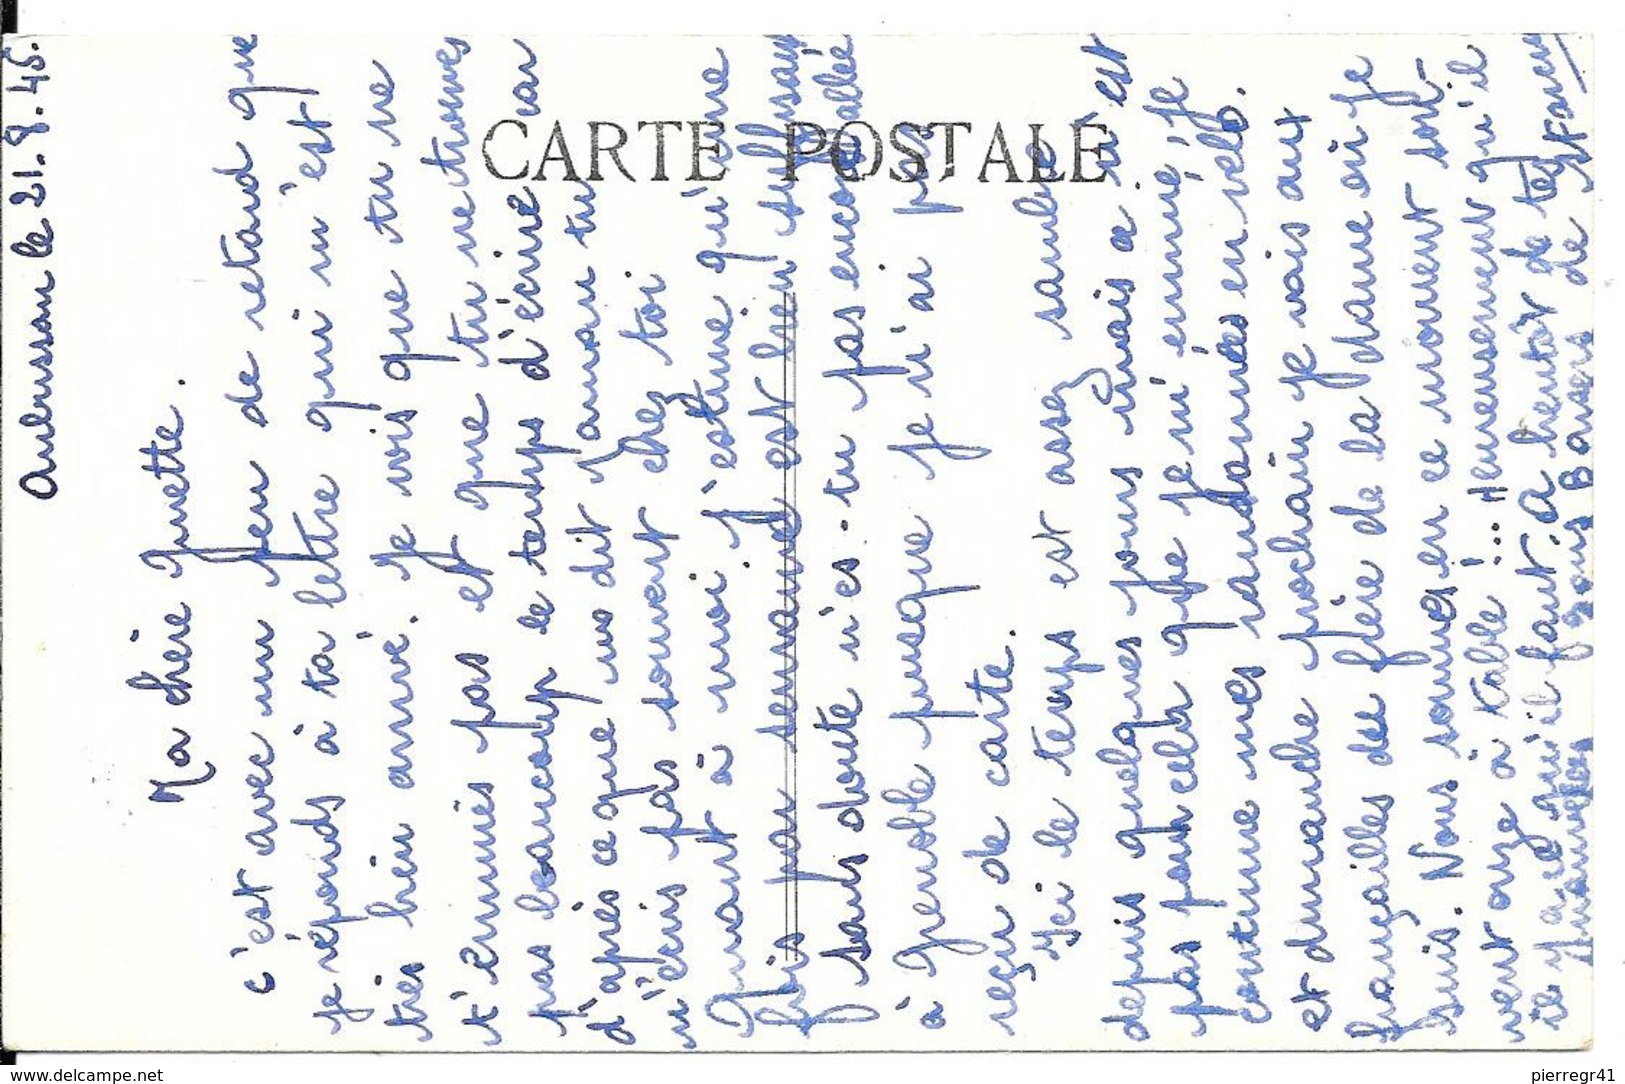 CARTE POSTALE
Aubusson le 21.8.45.
Ma chère Ginette.
c'est avec un peu de retard que
je réponds à ta lettre qui m'est
très bien arrivé. Je vois que tu ne
t'ennuies pas et que tu ne trouves
pas beaucoup le temps d'écrire car
d'après ce que me dit Maman tu
n'écris pas souvent chez toi.
Quant à moi j'estime qu'une
fois par semaine est bien suffisant
sans doute n'es-tu pas encore allée
à Grenoble puisque je n'ai pas
reçu de carte.
Ici le temps est assez sombre
depuis quelques jours mais ce n'est
pas pour cela que je m'ennuie, je
continue mes randonnées en vélo.
et dimanche prochain je vais aux
fiançailles du frère de la dame où je
suis. Nous sommes en ce moment sont-
vent onze à table !... Heureusement qu'il
y a ce qu'il faut. A bientôt de tes
Bons Baisers de
pierregr41
www.delcampe.net